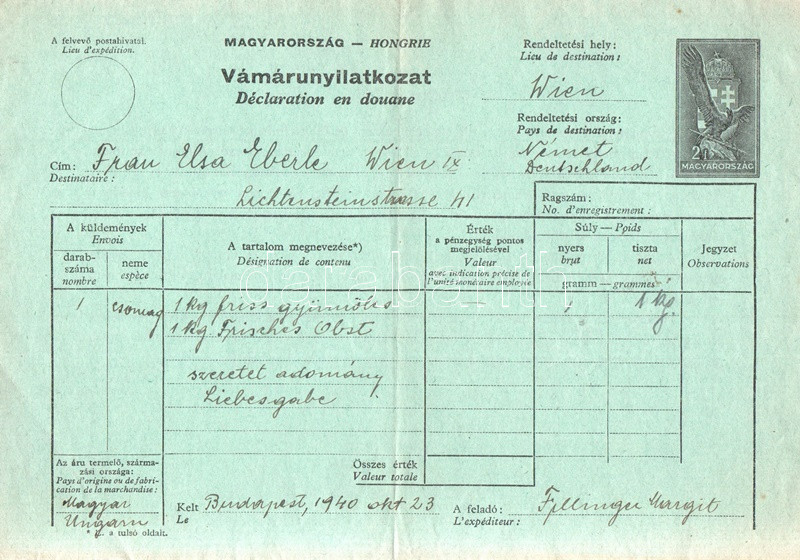 A felvevő postahivatal.
Lieu d'expédition.
MAGYARORSZÁG — HONGRIE
Vámárunyilatkozat
Déclaration en douane
Rendeltetési hely:
Lieu de destination:
Wien
Rendeltetési ország:
Pays de destination:
Német
Deutschland
2f
MAGYARORSZÁG
Cím: Frau Elsa Eberle Wien IX.
Destinataire:
Lichtensteinstrasse 41
Ragszám:
No. d'enregistrement:
A küldemények
Envois
darab-
száma
nombre
neme
espèce
A tartalom megnevezése*)
Désignation de contenu
Érték
a pénzegység pontos
megjelölésével
Valeur
avec indication précise de
l'unité monétaire employée
Súly — Poids
nyers
brut
tiszta
net
gramm — grammes
Jegyzet
Observations
1 csomag 1 kg friss gyümölcs 1 kg.
1 kg Frisches Obst
szeretet adomány
Liebesgabe
darabanth
Az áru termelő, szárma-
zási országa:
Pays d'origine ou de fabri-
cation de la marchandise:
Magyar
Ungarn
Összes érték
Valeur totale
Kelt Budapest, 1940 okt 23
Le
A feladó:
L'expéditeur:
Margit
* L. a tulsó oldalt.